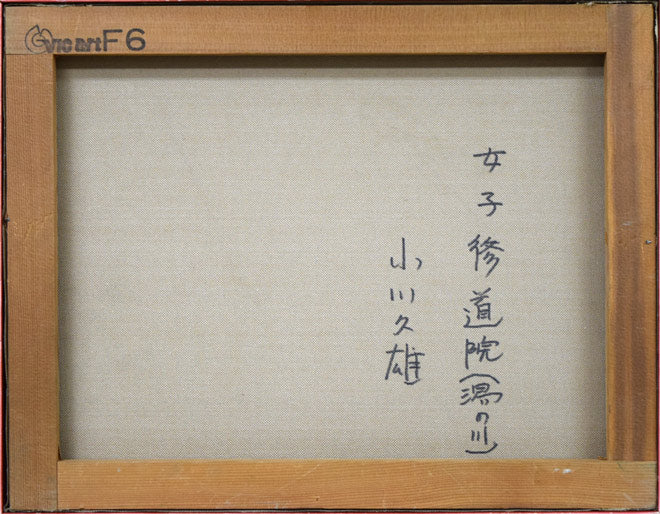 Vicart F6
女子修道院(湯の川)
小川久雄